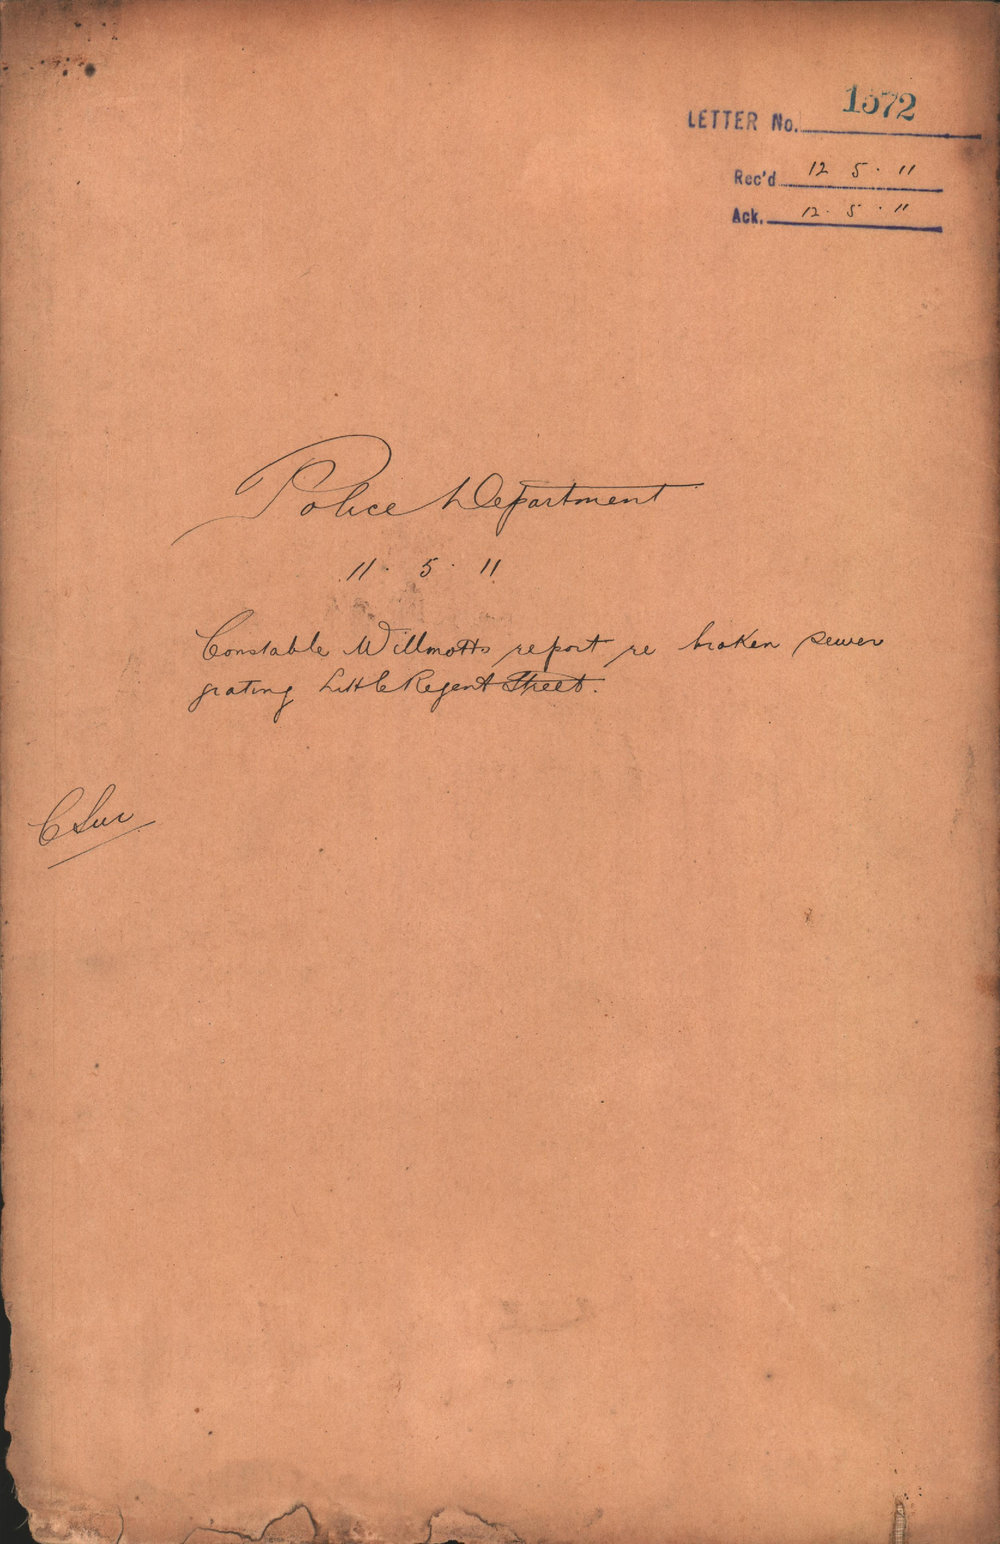 LETTER No. 1572
Rec'd 12 5 . 11
Ack. 12 . 5 . 11
Police Department
11 . 5 . 11
Constable Willmotts report re broken sewer
grating Little Regent Street.
C Sur